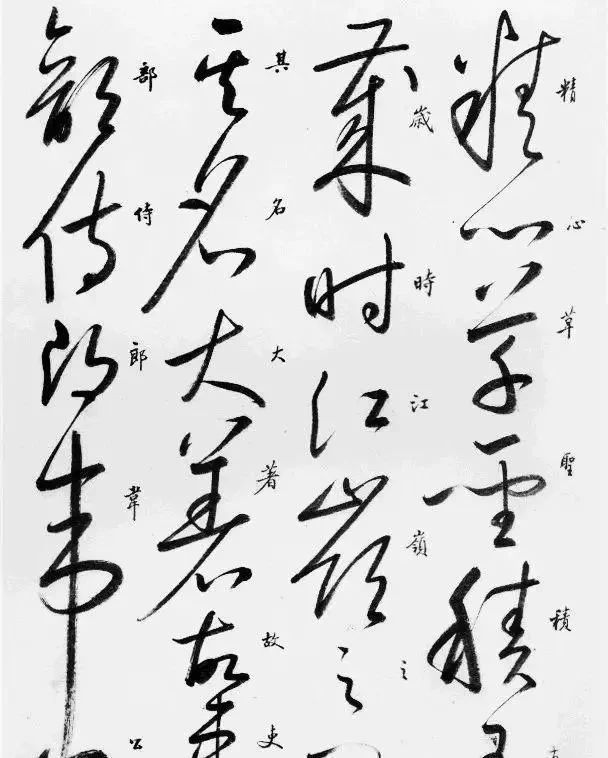 精心草聖積
歲時江嶺之
其名大著故吏
部侍郎韋公